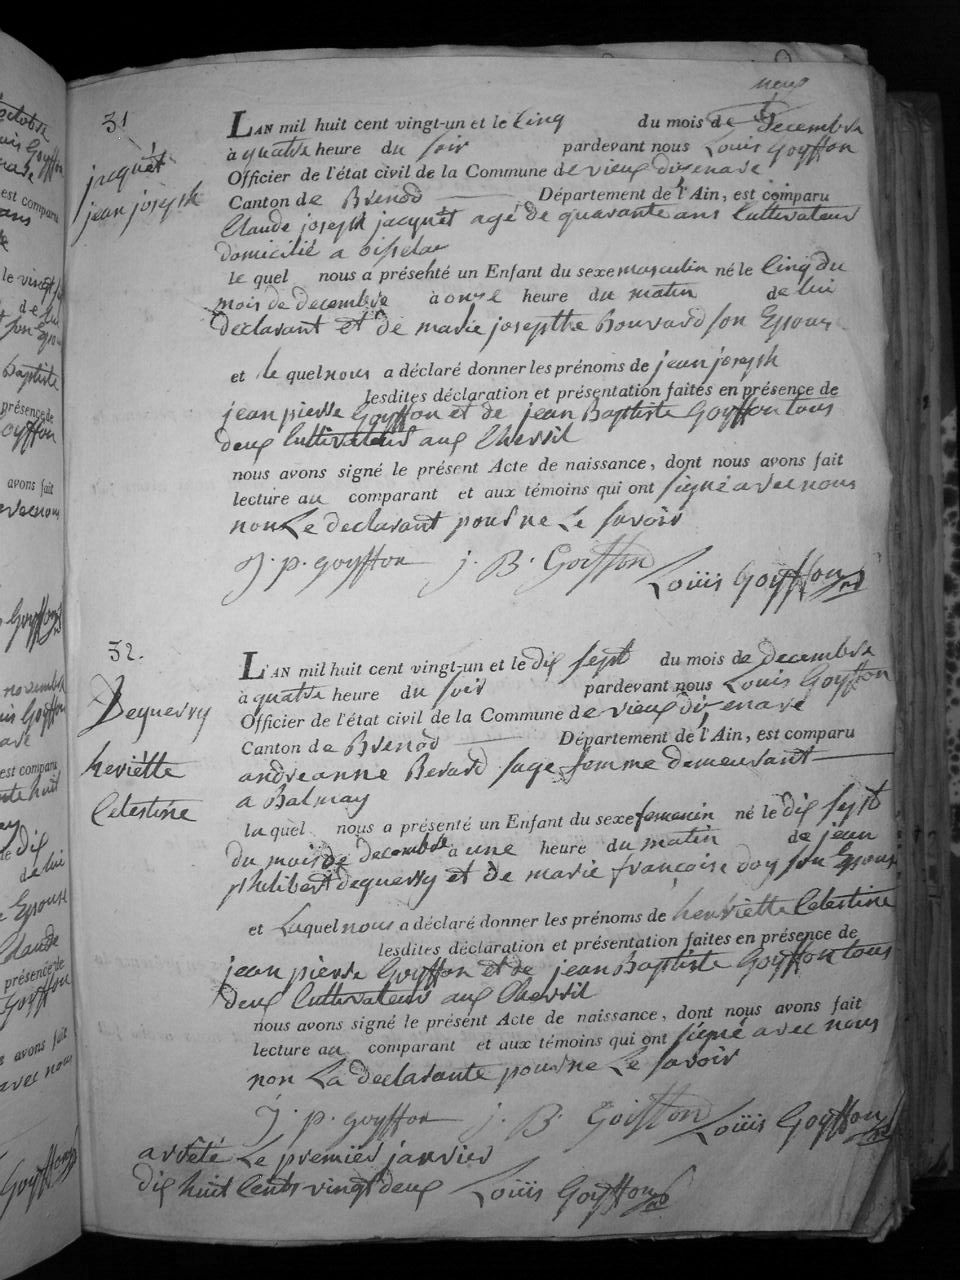 neuf
31
jacquet
jean joseph
LAN mil huit cent vingt-un et le Cinq du mois de Decembre
à quatre heure du soir pardevant nous Louis Goyffon
Officier de l'état civil de la Commune de vieux d'izenave
Canton de Brenod Département de l'Ain, est comparu
Claude joseph jacquet agé de quarante ans Cultivateur
domicilié a oisselas
le quel nous a présenté un Enfant du sexe masculin né le Cinq du
mois de decembre à onze heure du matin de lui
declarant et de marie josephte Bouvard son Epouse
et le quel nous a déclaré donner les prénoms de jean joseph
lesdites déclaration et présentation faites en présence de
jean pierre Goyffon et de jean Baptiste Goyffon tous
deux Cultivateurs aux Chevril
nous avons signé le présent Acte de naissance, dont nous avons fait
lecture au comparant et aux témoins qui ont signé avec nous
non Le declarant pour ne Le savoir
J. p. goyffon j. B. Goiffon Louiis Goyffon
32.
Dequerry
heriette
Celestine
L'AN mil huit cent vingt-un et le dix sept du mois de Decembre
à quatre heure du soir pardevant nous Louis Goyffon
Officier de l'état civil de la Commune de vieux d'izenave
Canton de Brenod Département de l'Ain, est comparu
andreanne Berard sage femme demeurant
a Balmay
laquel nous a présenté un Enfant du sexe femenin né le dix sept
du mois de decembre à une heure du matin de jean
philibert dequerry et de marie françoise doy son Epouse
et Laquel nous a déclaré donner les prénoms de henriette Celestine
lesdites déclaration et présentation faites en présence de
jean pierre Goyffon et de jean Baptiste Goyffon tous
deux Cultivateurs aux Chevril
nous avons signé le présent Acte de naissance, dont nous avons fait
lecture au comparant et aux témoins qui ont signé avec nous
non La declarante pour ne Le savoir
J. p. goyffon j. B. Goiffon Louiis Goyffon
arrêté Le premier janvier
dix huit Cents vingt deux Louiis Goyffon